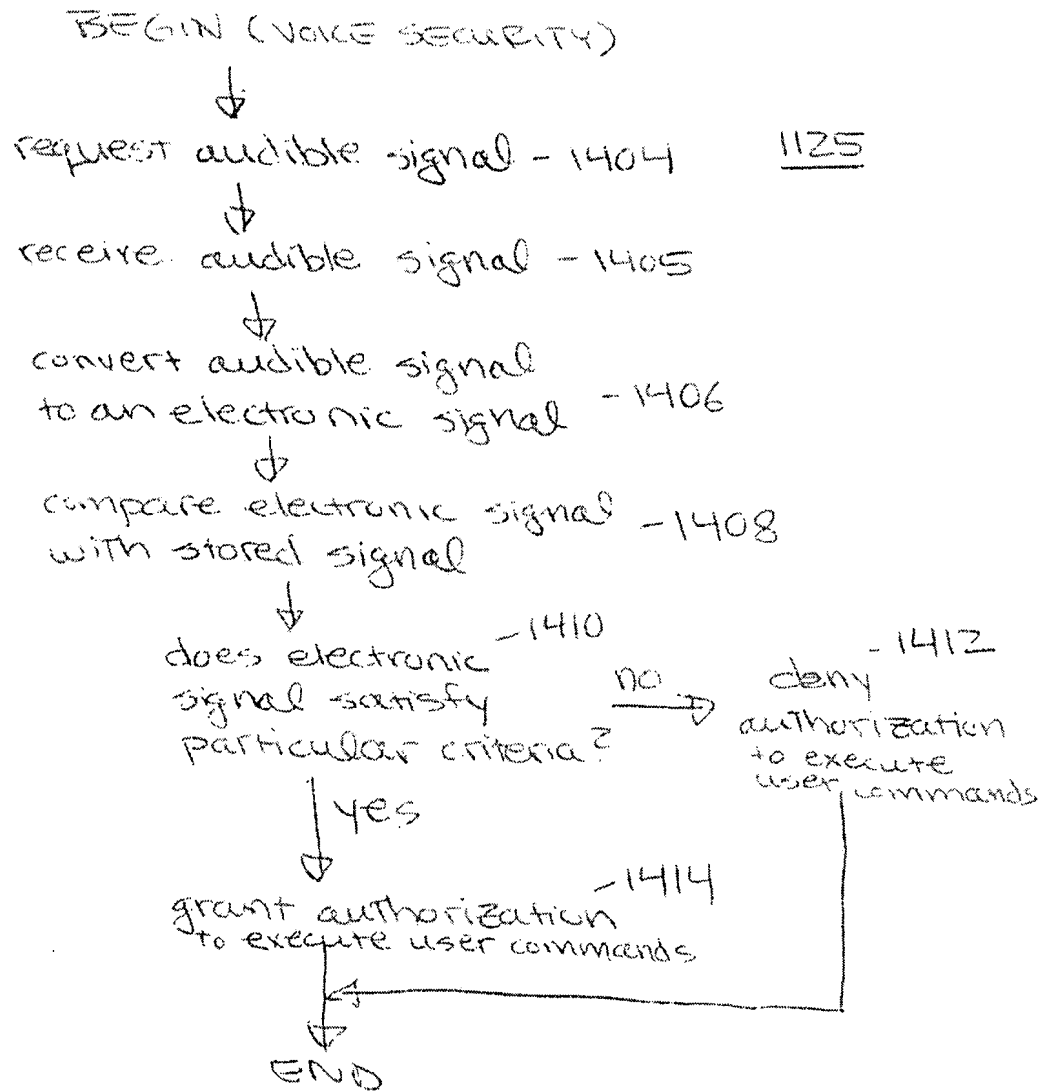 BEGIN (VOICE SECURITY)
request audible signal - 1404 1125
receive audible signal - 1405
convert audible signal
to an electronic signal - 1406
compare electronic signal - 1408
with stored signal
does electronic - 1410
signal satisfy
particular criteria?
no
deny - 1412
authorization
to execute
user commands
yes
grant authorization - 1414
to execute user commands
END